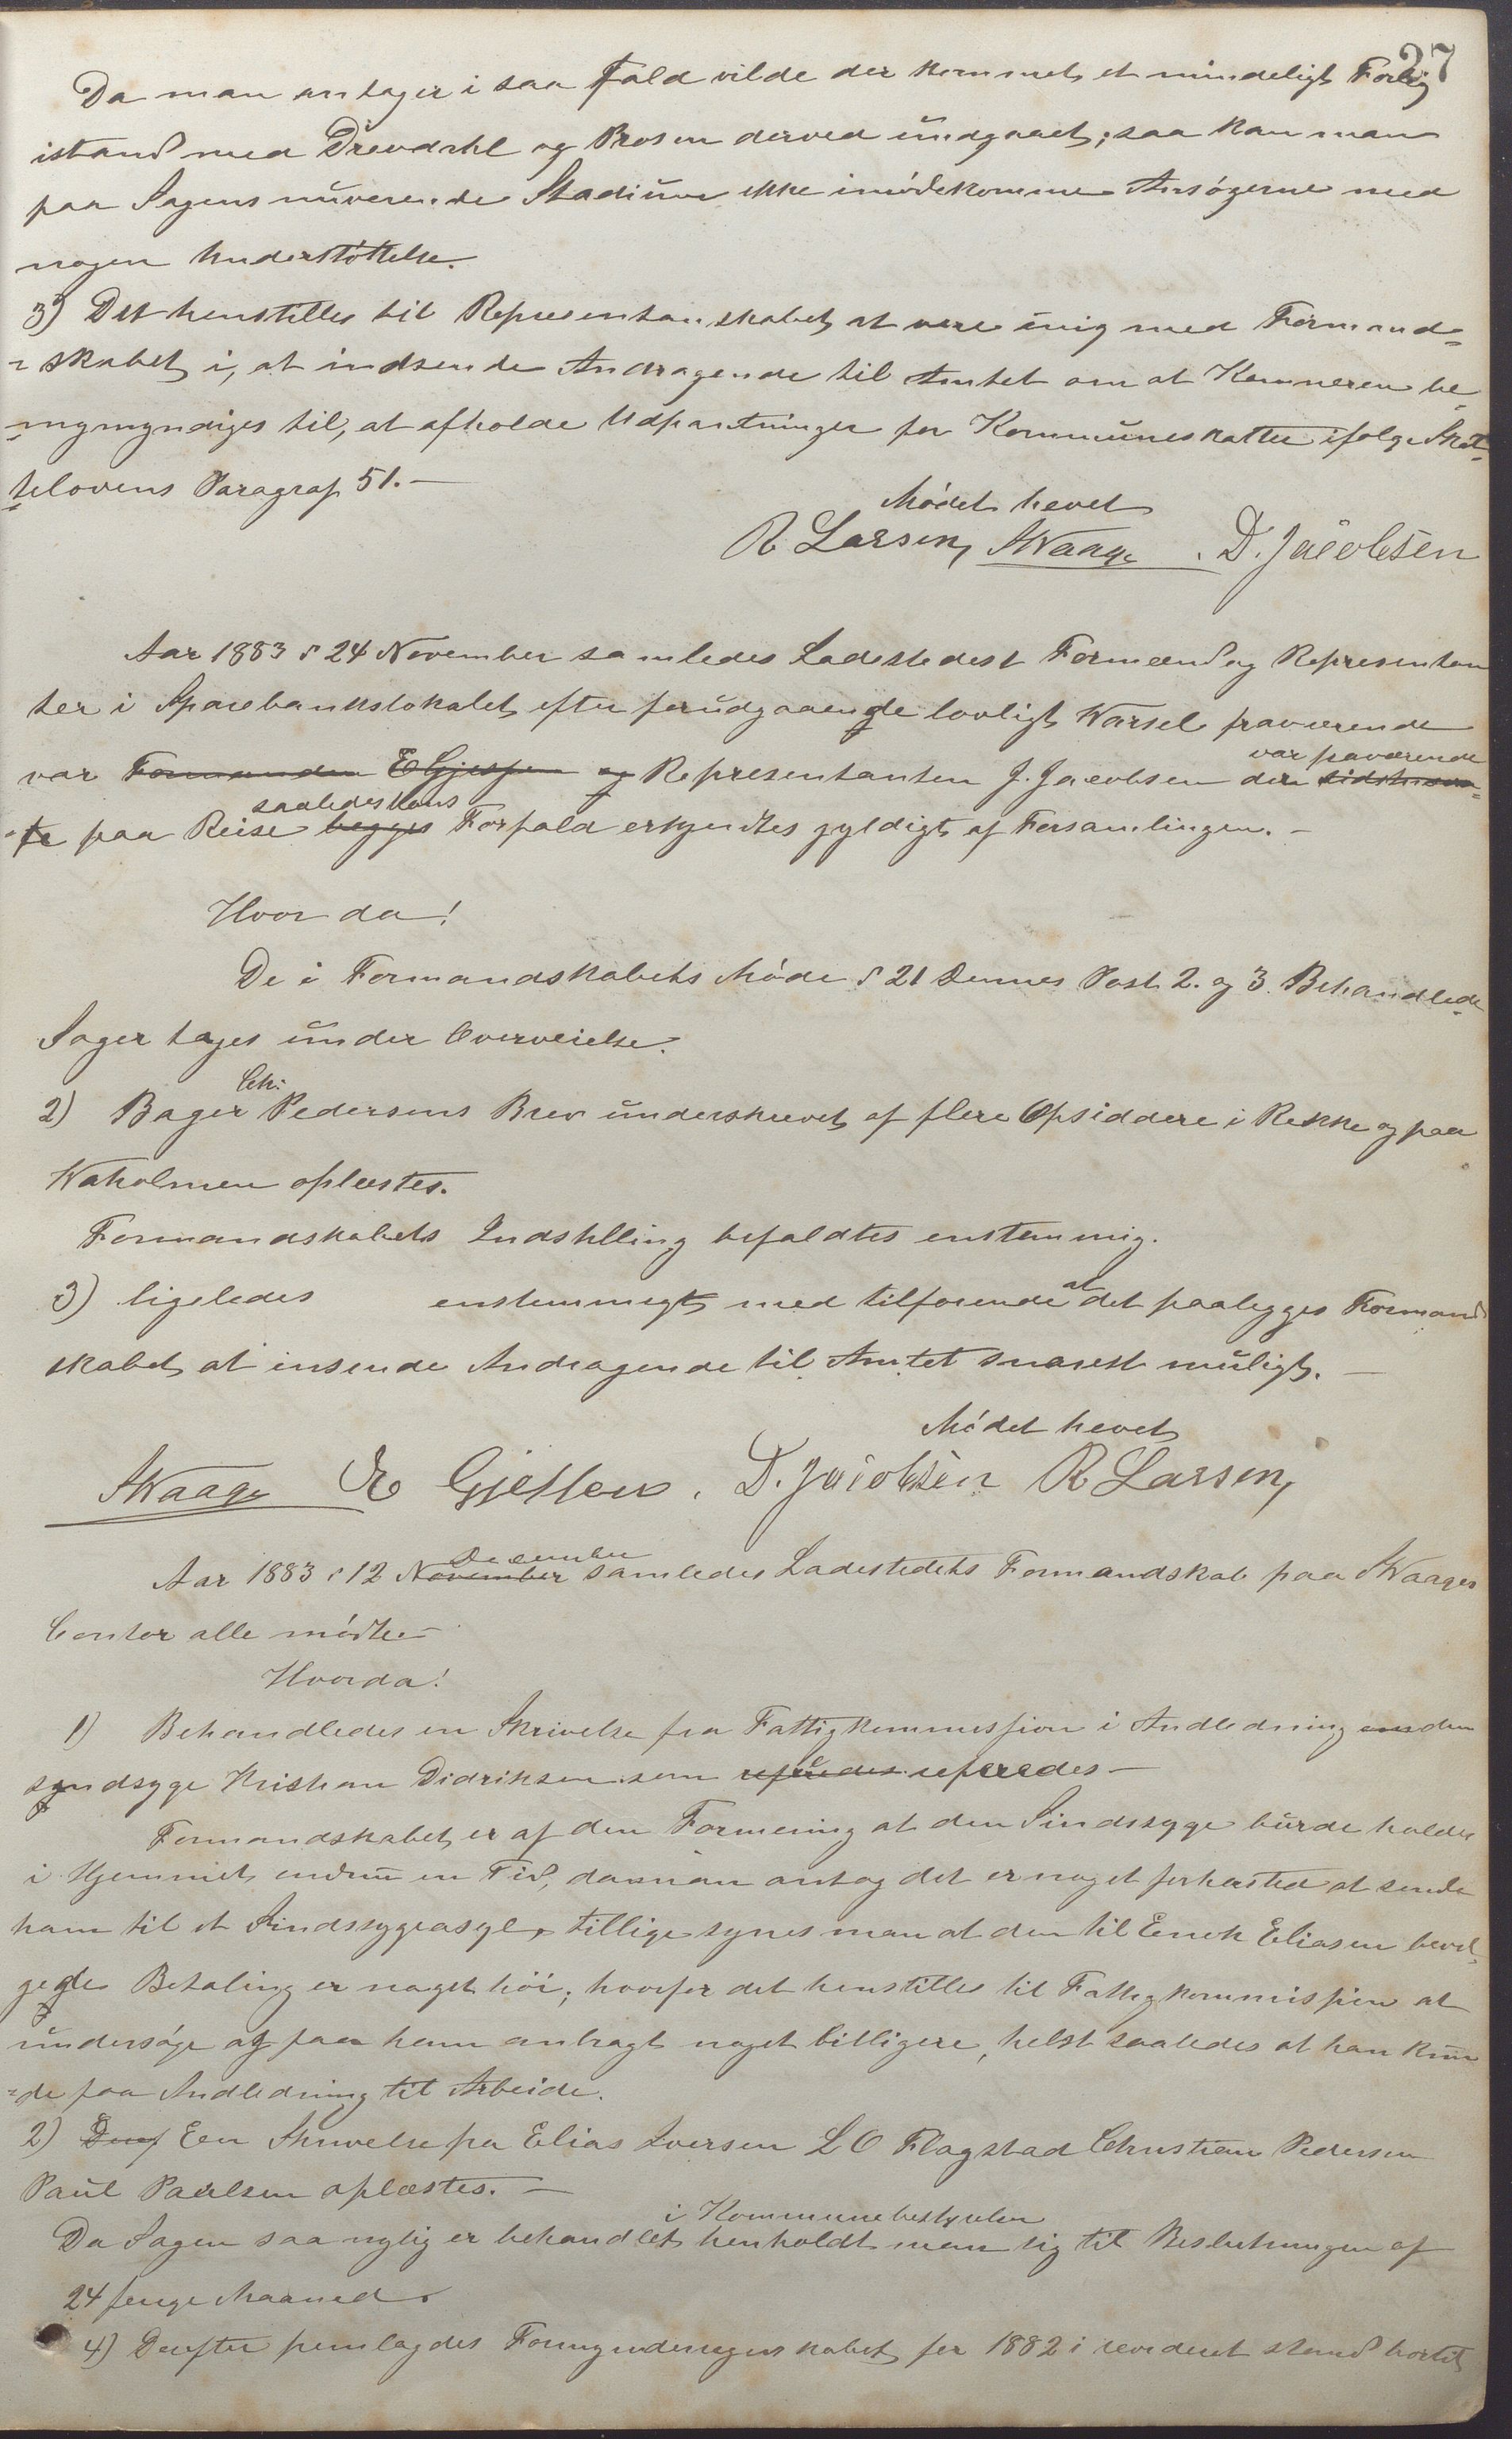 27
Da man antager i saa Fald vilde der kommet et mindeligt Forlig
istand med Drevdahl og Prosen derved undgaaet; saa kan man
paa Sagens nuverende Stadium ikke imödekomme Ansögerne med
nogen Understöttelse.
3) Det henstilles til Representanskabet at vere enig med Formand=
=skabet i, at indsende Andragende til Amtet om at Kemneren be=
=mymyndiges til, at afholde Udpantninger for Kommuneskatter ifölge Skat=
telovens Paragraf 51. —
Mödet hevet
R Larsen, SWaage . D. Jacobsen
Aar 1883 d 24 November samledes Ladestedest Formænd og Representan
ter i Sparebankslokalet efter forudgaaengde lovligt Warsel fraværende
var Formanden E Gjessen og Representanten J. Jacobsen der var fraværende sidstnevn=
=te paa Reise saaledes hans begges Forfald erkjendtes gyldigt af Forsamlingen. —
Hvor da!
De i Formandskabets Möde d 21 Dennes Post 2. og 3. Behandlede
Sager tages under Overveielse.
2) Bager Ch: Pedersens Brev underskrevet af flere Opsiddere i Rekke og paa
Waholmen oplæstes.
Formandskabets Indstilling bifaldtes enstemmig.
3) ligeledes enstemmigt med tilföiende at det paalegges Formand
skabet at insende Andragende til Amtet snarest muligt. —
Mödet hevet
SWaage E Gjessen . D. Jacobsen R Larsen,
Aar 1883 d 12 November December samledes Ladestedets Formandskab paa SWaages
Contor alle mödte —
Hvorda!
1) Behandledes en Skrivelse fra Fattigkommissjion i Andledning den
syndsyge Kristian Didriksen som refredes refereredes —
Formandskabet er af den Formening at den Sindssyge burde holdes
i Hjemmet endnu en Tid, da man antog det er noget forhasted at sende
ham til et Sindssygeasyl, tillige synes man at den til Enok Eliasen bevil=
gegde Betaling er noget höi; hvorfor det henstilles til Fattigkommissjien at
undersöge og faa ham anbragt noget billigere, helst saaledes at han kun
=de faa Andledning til Arbeide.
2) Een Skrivelse fra Elias Iversen L O Flagstad Christian Pedersen
Paul Paulsen oplæstes. —
Da Sagen saa nylig er behandlet i Kommunebestyrelsen henholdt man sig til Beslutningen af
24 forige Maaned.
4) Derefter fremlagdes Formynderregnskabet for 1882 i revideret stand hvortil